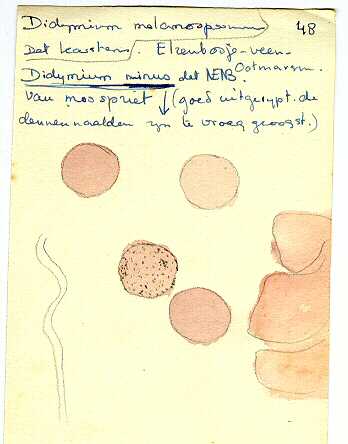 Didymium melanospermum 48
Det Karstens. Elzenbosje-veen-
Ootmarsum.
Didymium minus det NENB
van mosspriet ↓ (goed uitgerijpt. de
dennennaalden zijn te vroeg geoogst.)